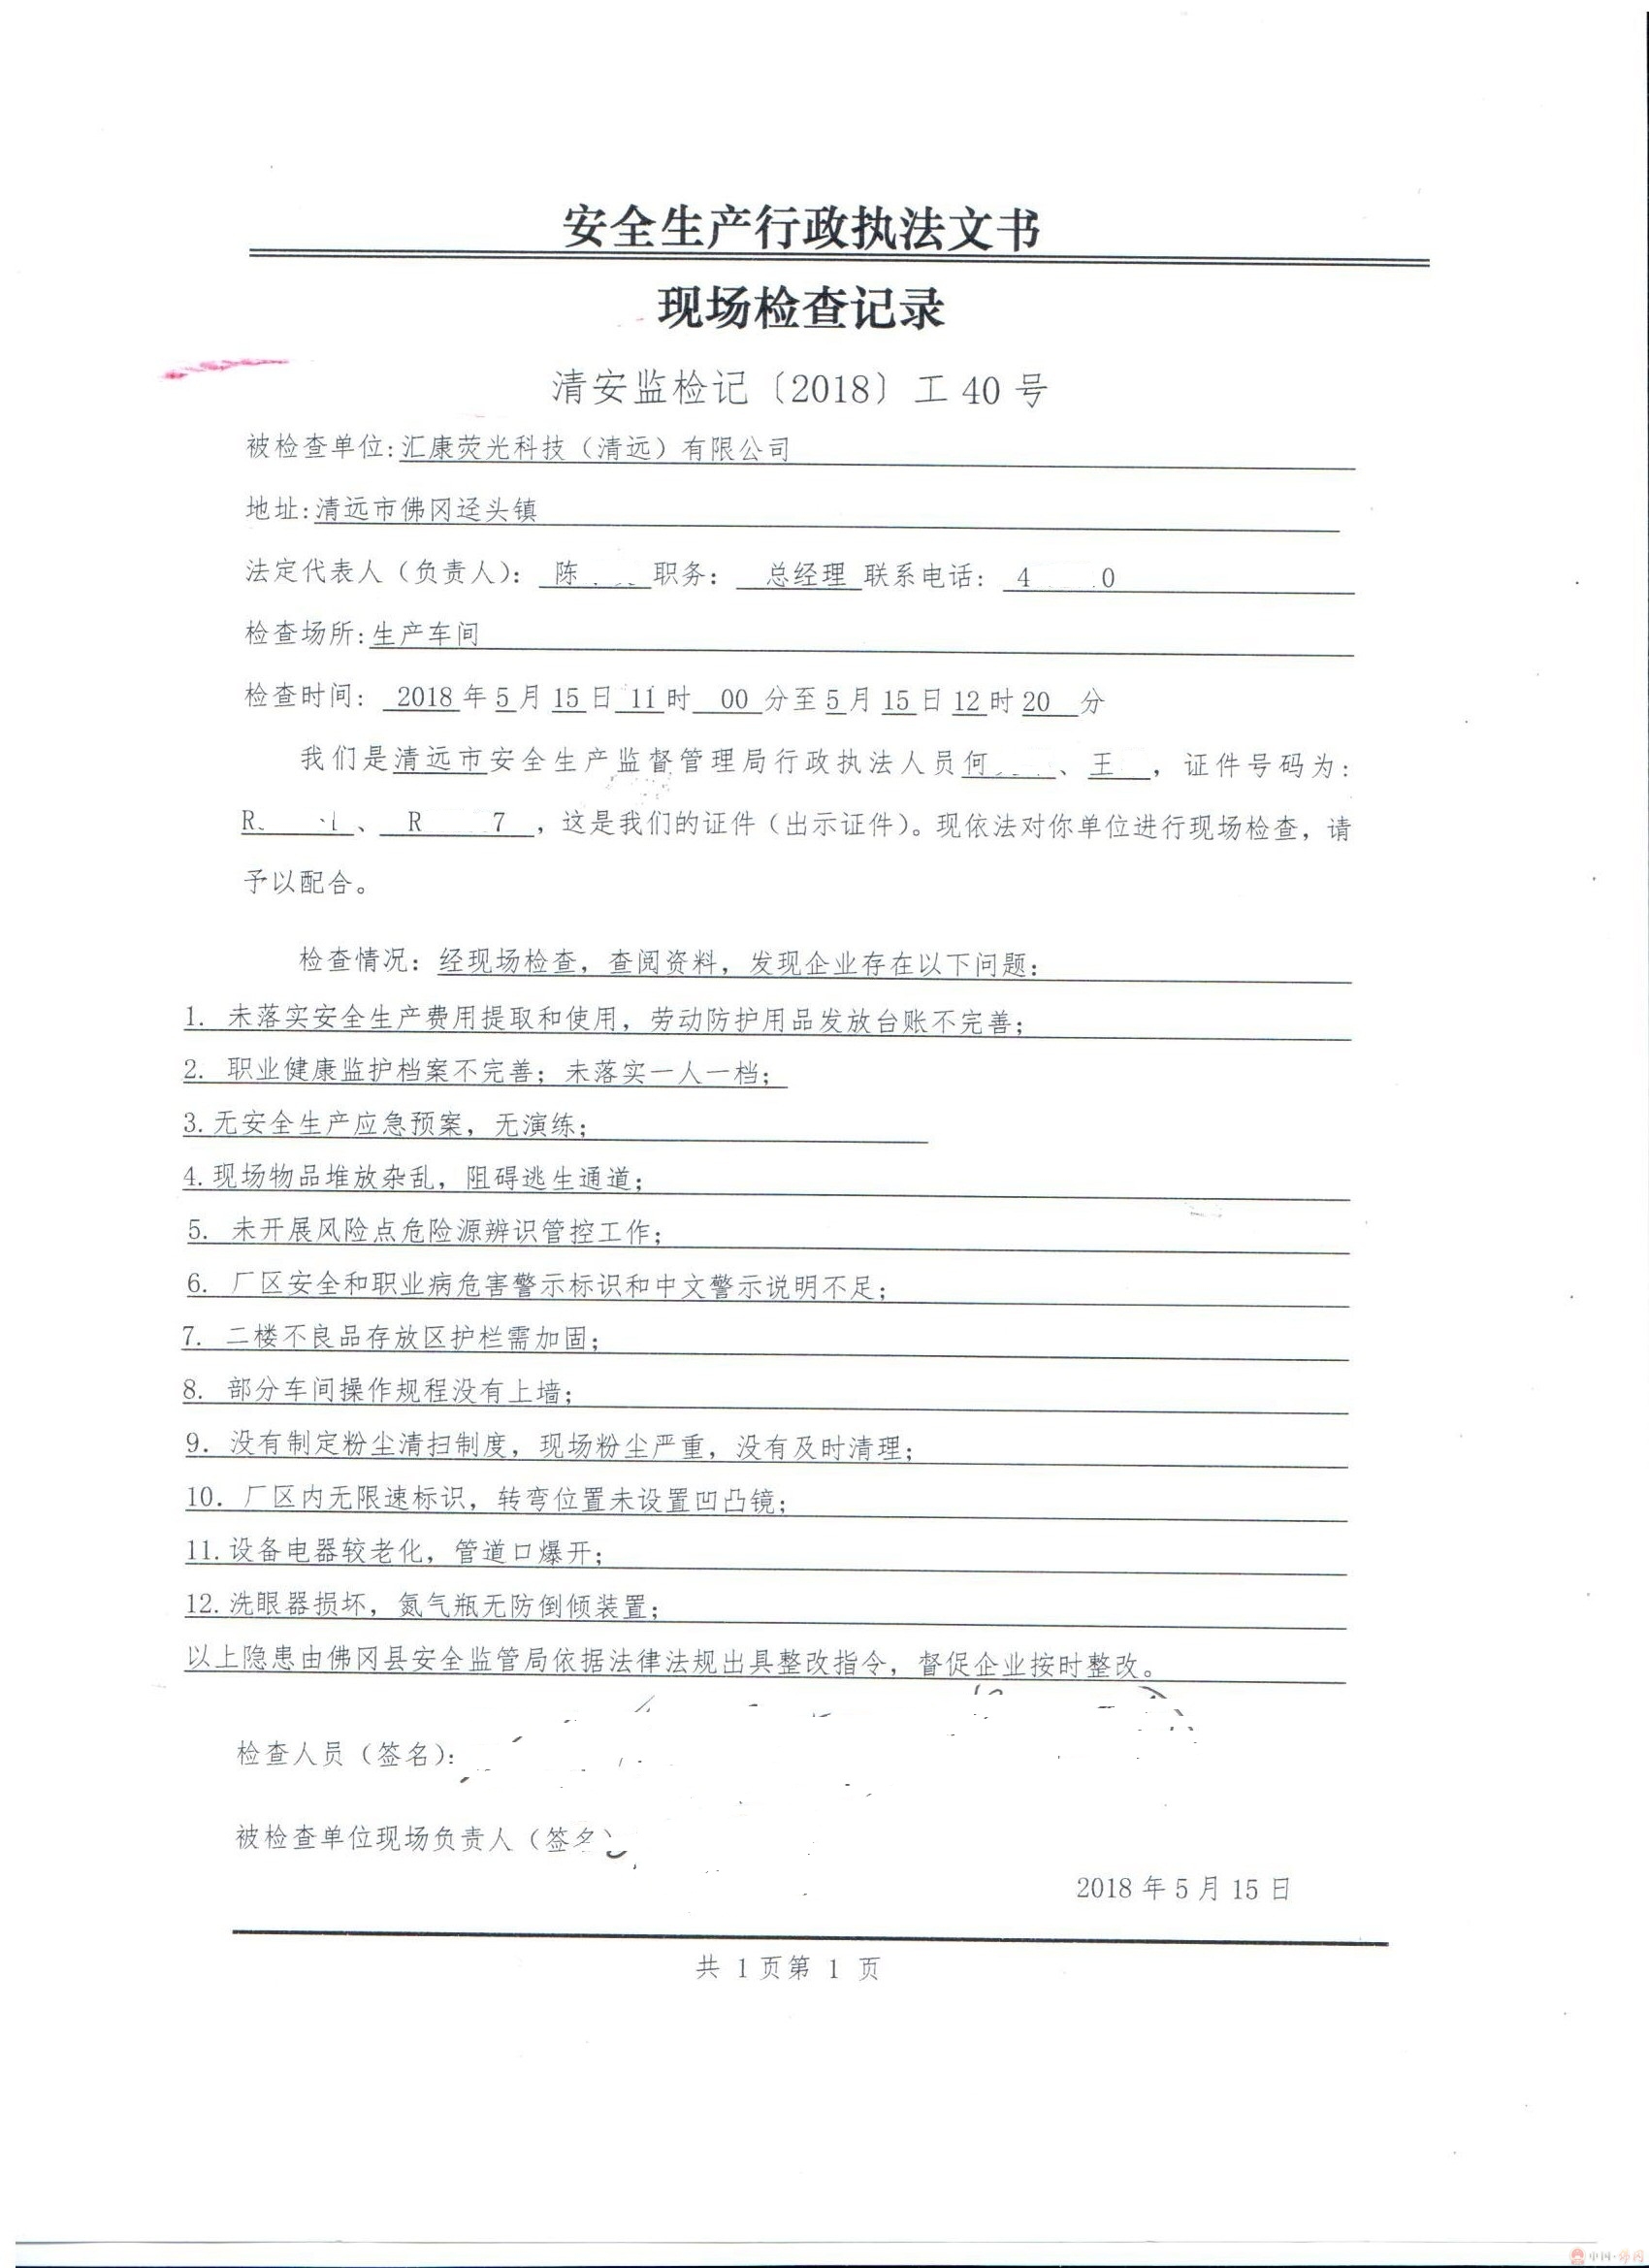 安全生产行政执法文书
现场检查记录
清安监检记〔2018〕工 40 号
被检查单位:汇康荧光科技（清远）有限公司
地址:清远市佛冈迳头镇
法定代表人（负责人）: 陈 职务: 总经理 联系电话: 4 0
检查场所:生产车间
检查时间: 2018 年 5 月 15 日 11 时 00 分至 5 月 15 日 12 时 20 分
我们是清远市安全生产监督管理局行政执法人员何 、王 ，证件号码为:
R 、 R 7 ，这是我们的证件（出示证件）。现依法对你单位进行现场检查，请
予以配合。
检查情况: 经现场检查，查阅资料，发现企业存在以下问题:
1. 未落实安全生产费用提取和使用，劳动防护用品发放台账不完善;
2. 职业健康监护档案不完善; 未落实一人一档;
3.无安全生产应急预案，无演练;
4.现场物品堆放杂乱，阻碍逃生通道;
5. 未开展风险点危险源辨识管控工作;
6. 厂区安全和职业病危害警示标识和中文警示说明不足;
7. 二楼不良品存放区护栏需加固;
8. 部分车间操作规程没有上墙;
9. 没有制定粉尘清扫制度，现场粉尘严重，没有及时清理;
10. 厂区内无限速标识，转弯位置未设置凹凸镜;
11.设备电器较老化，管道口爆开;
12.洗眼器损坏，氮气瓶无防倒倾装置;
以上隐患由佛冈县安全监管局依据法律法规出具整改指令，督促企业按时整改。
检查人员（签名）:
被检查单位现场负责人（签名）
2018 年 5 月 15 日
共 1 页第 1 页
中国·佛冈